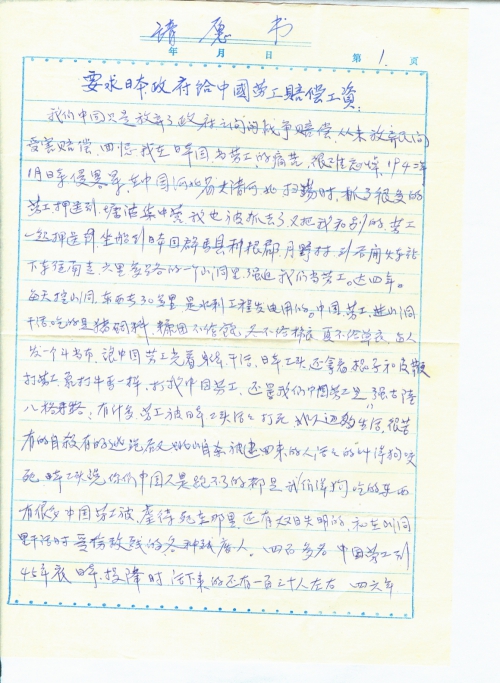 请愿书
年 月 日 第 1. 页
要求日本政府给中國劳工賠偿工資:
我们中国只是放弃了政府之间的战争赔偿,从来放弃民间
受害赔偿,回忆我在日本国当劳工的痛苦,很难忘掉,194二年
1月日军侵畧军在中国河北省大清河北扫荡时,抓了很多的
劳工押送到塘沽集中营我也被抓去了又把我和别的劳工
一起押送坐船到日本国群馬县利根郡月野村,到后闲火车站
下车往南走六里多路的一个山洞里,强迫我们当劳工。达四年。
每天挖山洞,东西长30多里是水利工程发电用的。中国劳工进山洞
干活吃的是猪飼料,糠团不给饱,冬不给棉衣夏不给单衣,每人
发一个布,让中国劳工光着身体干活,日本工头还拿着棍子和皮鞭
打劳工象打牛马一样,打我中国劳工,还骂我们中国劳工是
八格牙路,有什多劳工被日本工头活活打死
有的自殺有的逃跑后被逮回来的人活活的叫狼狗咬
死,日本工头说你们中国人是跑不了的都是我们狼狗吃的东西
有很多中国劳工被虐待死在那里还有双目失明的,和在山洞
里干活时受伤致残的各种残废人。四百多名中国劳工到
45年底日本投降时,活下来的还有一百三十人左右 四六年